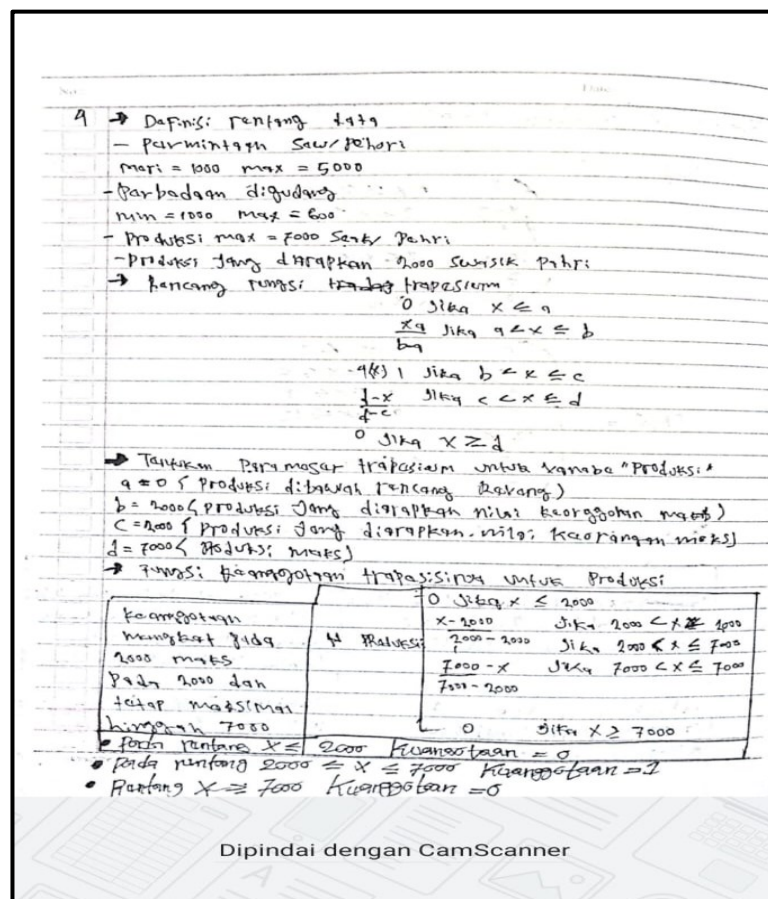 No:
Date:
4 → Definisi rentang data
- Permintaan saw/Pehari
mari = 1000 max = 5000
- Parbadaan digudang
min = 1000 max = 600
- Produksi max = 7000 Pehri
- Produksi Jang diarapkan 2000 Pihri
→ Rancang fungsi trapasium
0 Jika x ≤ a
xa Jika a < x ≤ b
ba
4(x) 1 Jika b < x ≤ c
d-x Jika c < x ≤ d
d-c
0 Jika x ≥ d
→ Tantukan Paramosar trapasium untuk "Produksi"
a = 0 { Produksi dibawah rancang )
b = 2000 { produksi Jang diarapkan nilai keanggotan )
c = 2000 { produksi Jang diarapkan nilai maks)
d = 7000 { Produksi maks)
→ Fungsi keanggotaan untuk Produksi
Keanggotaan
maningkat pada
2000 maks
Pada 2000 dan
tetap maksimal
hinggah 7000
M PRODUKSI
0 Jika x ≤ 2000
x-2000 Jika 2000 < x ≤ 2000
2000-2000 Jika 2000 < x ≤ 7000
7000-x Jika 7000 < x ≤ 7000
7000-2000
0 Jika x ≥ 7000
• Pada rentang x ≤ 2000 = 0
• Pada rentang 2000 ≤ x ≤ 7000 = 1
• Rentang x ≥ 7000 = 0
Dipindai dengan CamScanner